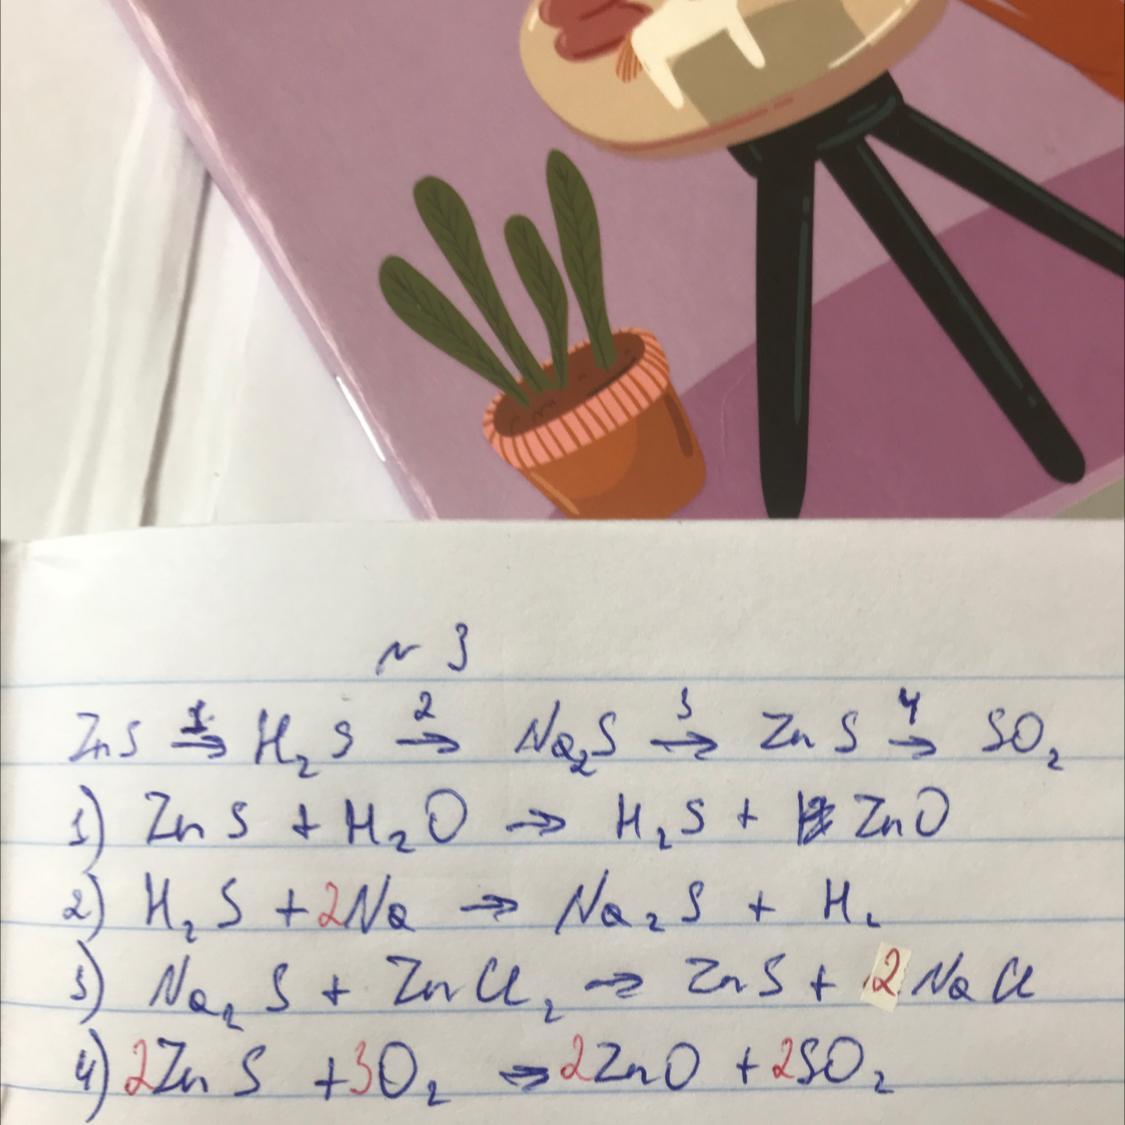 № 3
ZnS →¹ H₂S →² Na₂S →³ ZnS →⁴ SO₂
1) ZnS + H₂O → H₂S + ZnO
2) H₂S + 2Na → Na₂S + H₂
3) Na₂S + ZnCl₂ → ZnS + 2NaCl
4) 2ZnS + 3O₂ → 2ZnO + 2SO₂